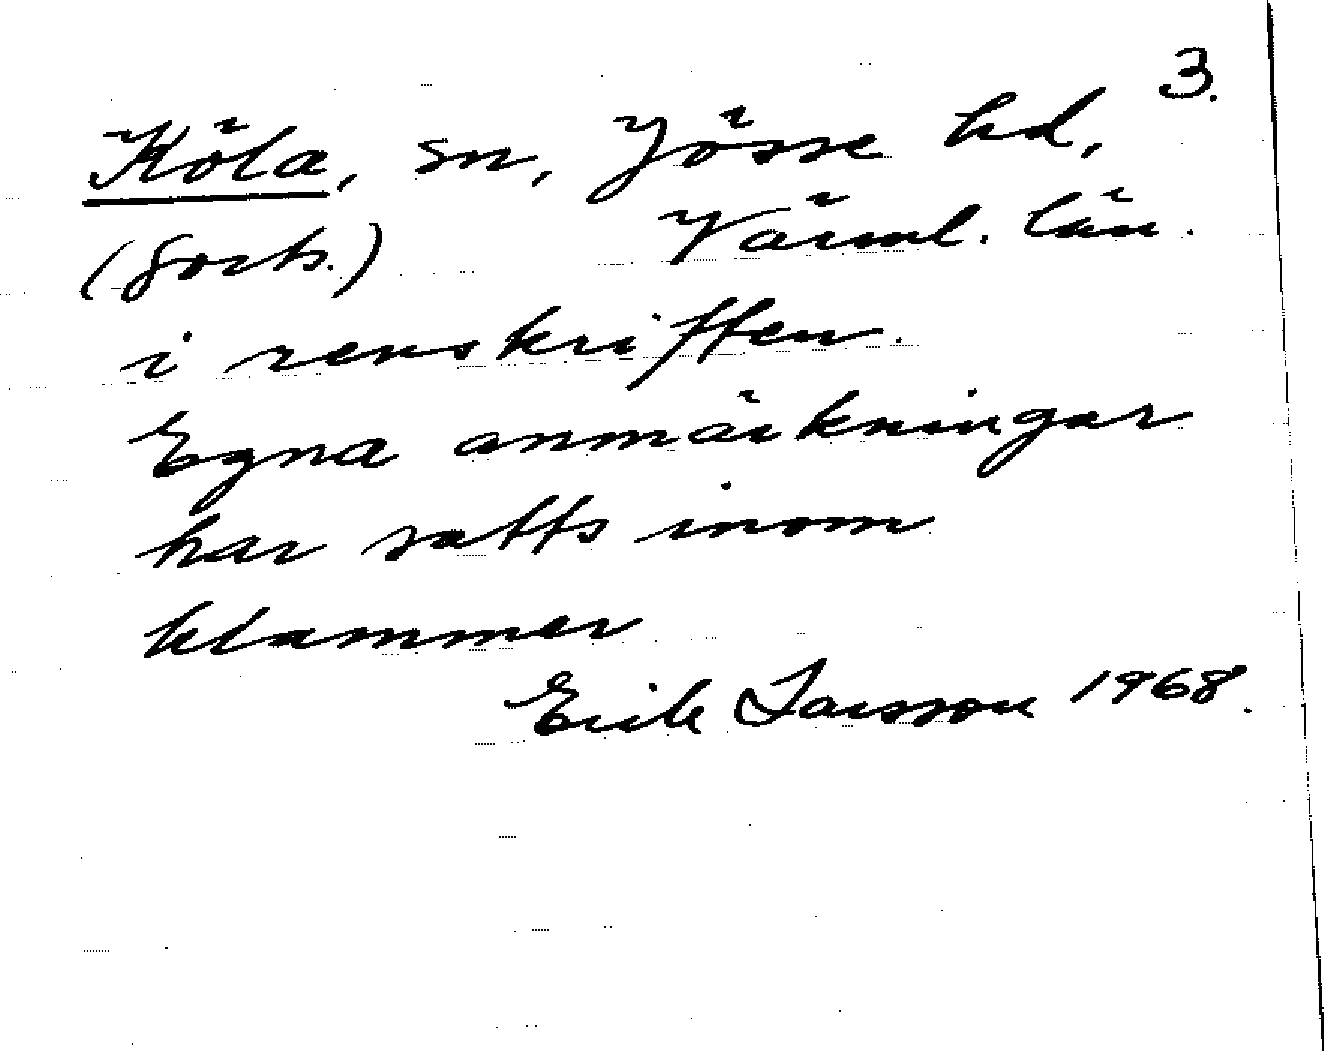 3.
Köla, sn, Jösse hd,
(forts.) Värml. län.
i renskriften.
Egna anmärkningar
har satts inom
klammer
Erik Larsson 1968.